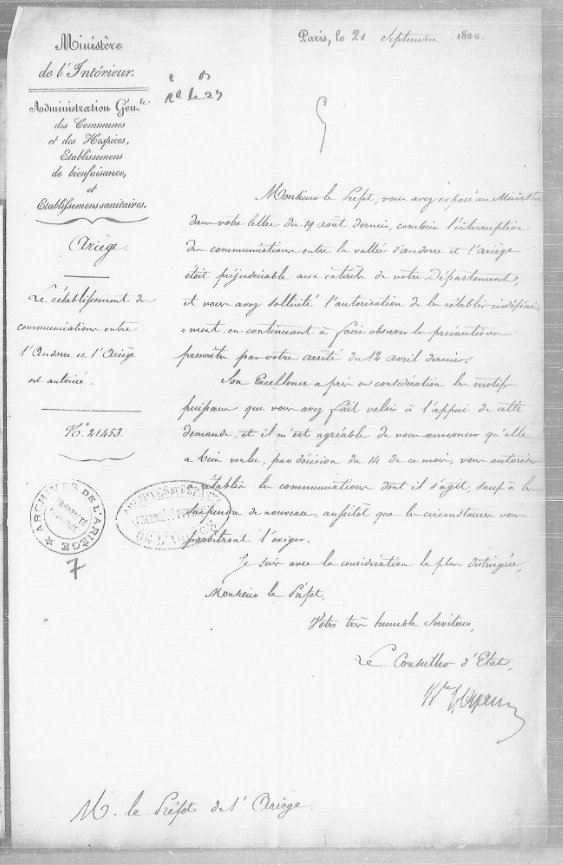 Ministère
de l'Intérieur.
Administration Gén.le
des Communes
et des Hospices,
Etablissemens
de bienfaisance,
et
Etablissemens sanitaires.
Ariège.
Le rétablissement de
communications entre
l'Andorre et l'Ariège
est autorisé.
N.° 21453.
Paris, le 21 Septembre 1822.
Monsieur le Préfet, vous avez exposé au Ministre
dans votre lettre du 19 août dernier, combien l'interruption
des communications entre la vallée d'andorre et l'ariège
était préjudiciable aux intérêts de votre Département,
et vous avez sollicité l'autorisation de les rétablir indéfini-
ment, en continuant à faire observer les précautions
prescrites par votre arrêté du 12 avril dernier.
Son Excellence a pris en considération les motifs
puissans que vous avez fait valoir à l'appui de cette
demande, et il m'est agréable de vous annoncer qu'elle
a bien voulu, par décision du 14 de ce mois, vous autoriser
à rétablir les communications dont il s'agit, sauf à les
suspendre de nouveau aussitôt que les circonstances vous
paraîtront l'exiger.
Je suis avec la considération la plus distinguée,
Monsieur le Préfet,
Votre très humble Serviteur,
Le Conseiller d'Etat,
ARCHIVES DE L'ARIÈGE
7
M. le Préfet de l'Ariège.